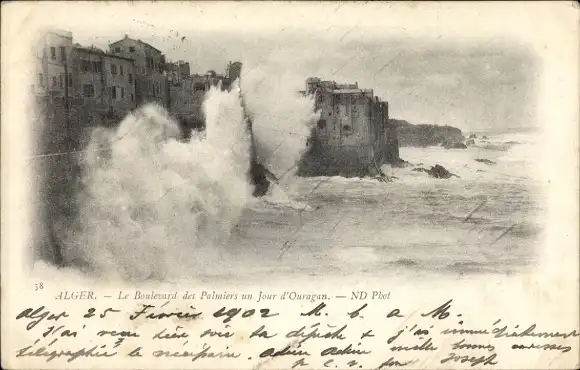 38 ALGER. — Le Boulevard des Palmiers un Jour d'Ouragan. — ND Phot
Alger 25 Février 1902 M. b. a M.
J'ai reçu hier soir la dépêch et j'ai immédiatement
télégraphié le nécessaire. Adieu Adieu mille bonnes caresses
Joseph